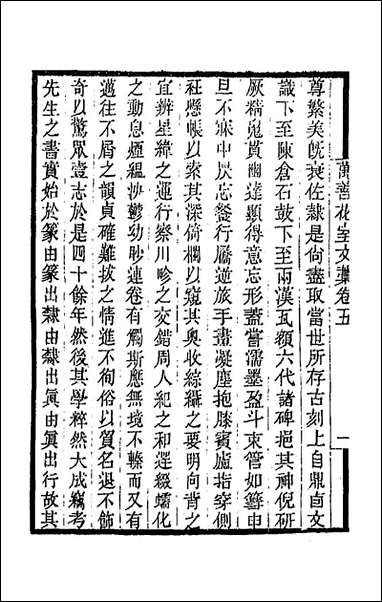 萬善花室文藁卷五
一
尊繁美旣衰佐隷是尙盡取當世所存古刻上自鼎卣文
識下至陳倉石鼓下至兩漢瓦額六代諸碑挹其神倪研
厥精鬼貫幽達顯得意忘形蓋嘗濡墨盈斗束管如篲申
旦不寐中昃忘餐行縢道旅手畫凝塵抱膝賓廬指穿側
衽懸帳以索其深倚欄以窺其奥收綜攝之要明向背之
宜辨星緯之運行察川畛之交錯周人紀之和遝綴蠕化
之動息煙煴渺鬱幼眇連卷有觸斯應無境不臻而又有
邁往不屑之韻貞確難拔之情進不徇俗以質名退不飾
奇以驚眾壹志於是四十餘年然後其學粹然大成竊考
先生之書實始於篆由篆出隷由隷出眞由眞出行故其